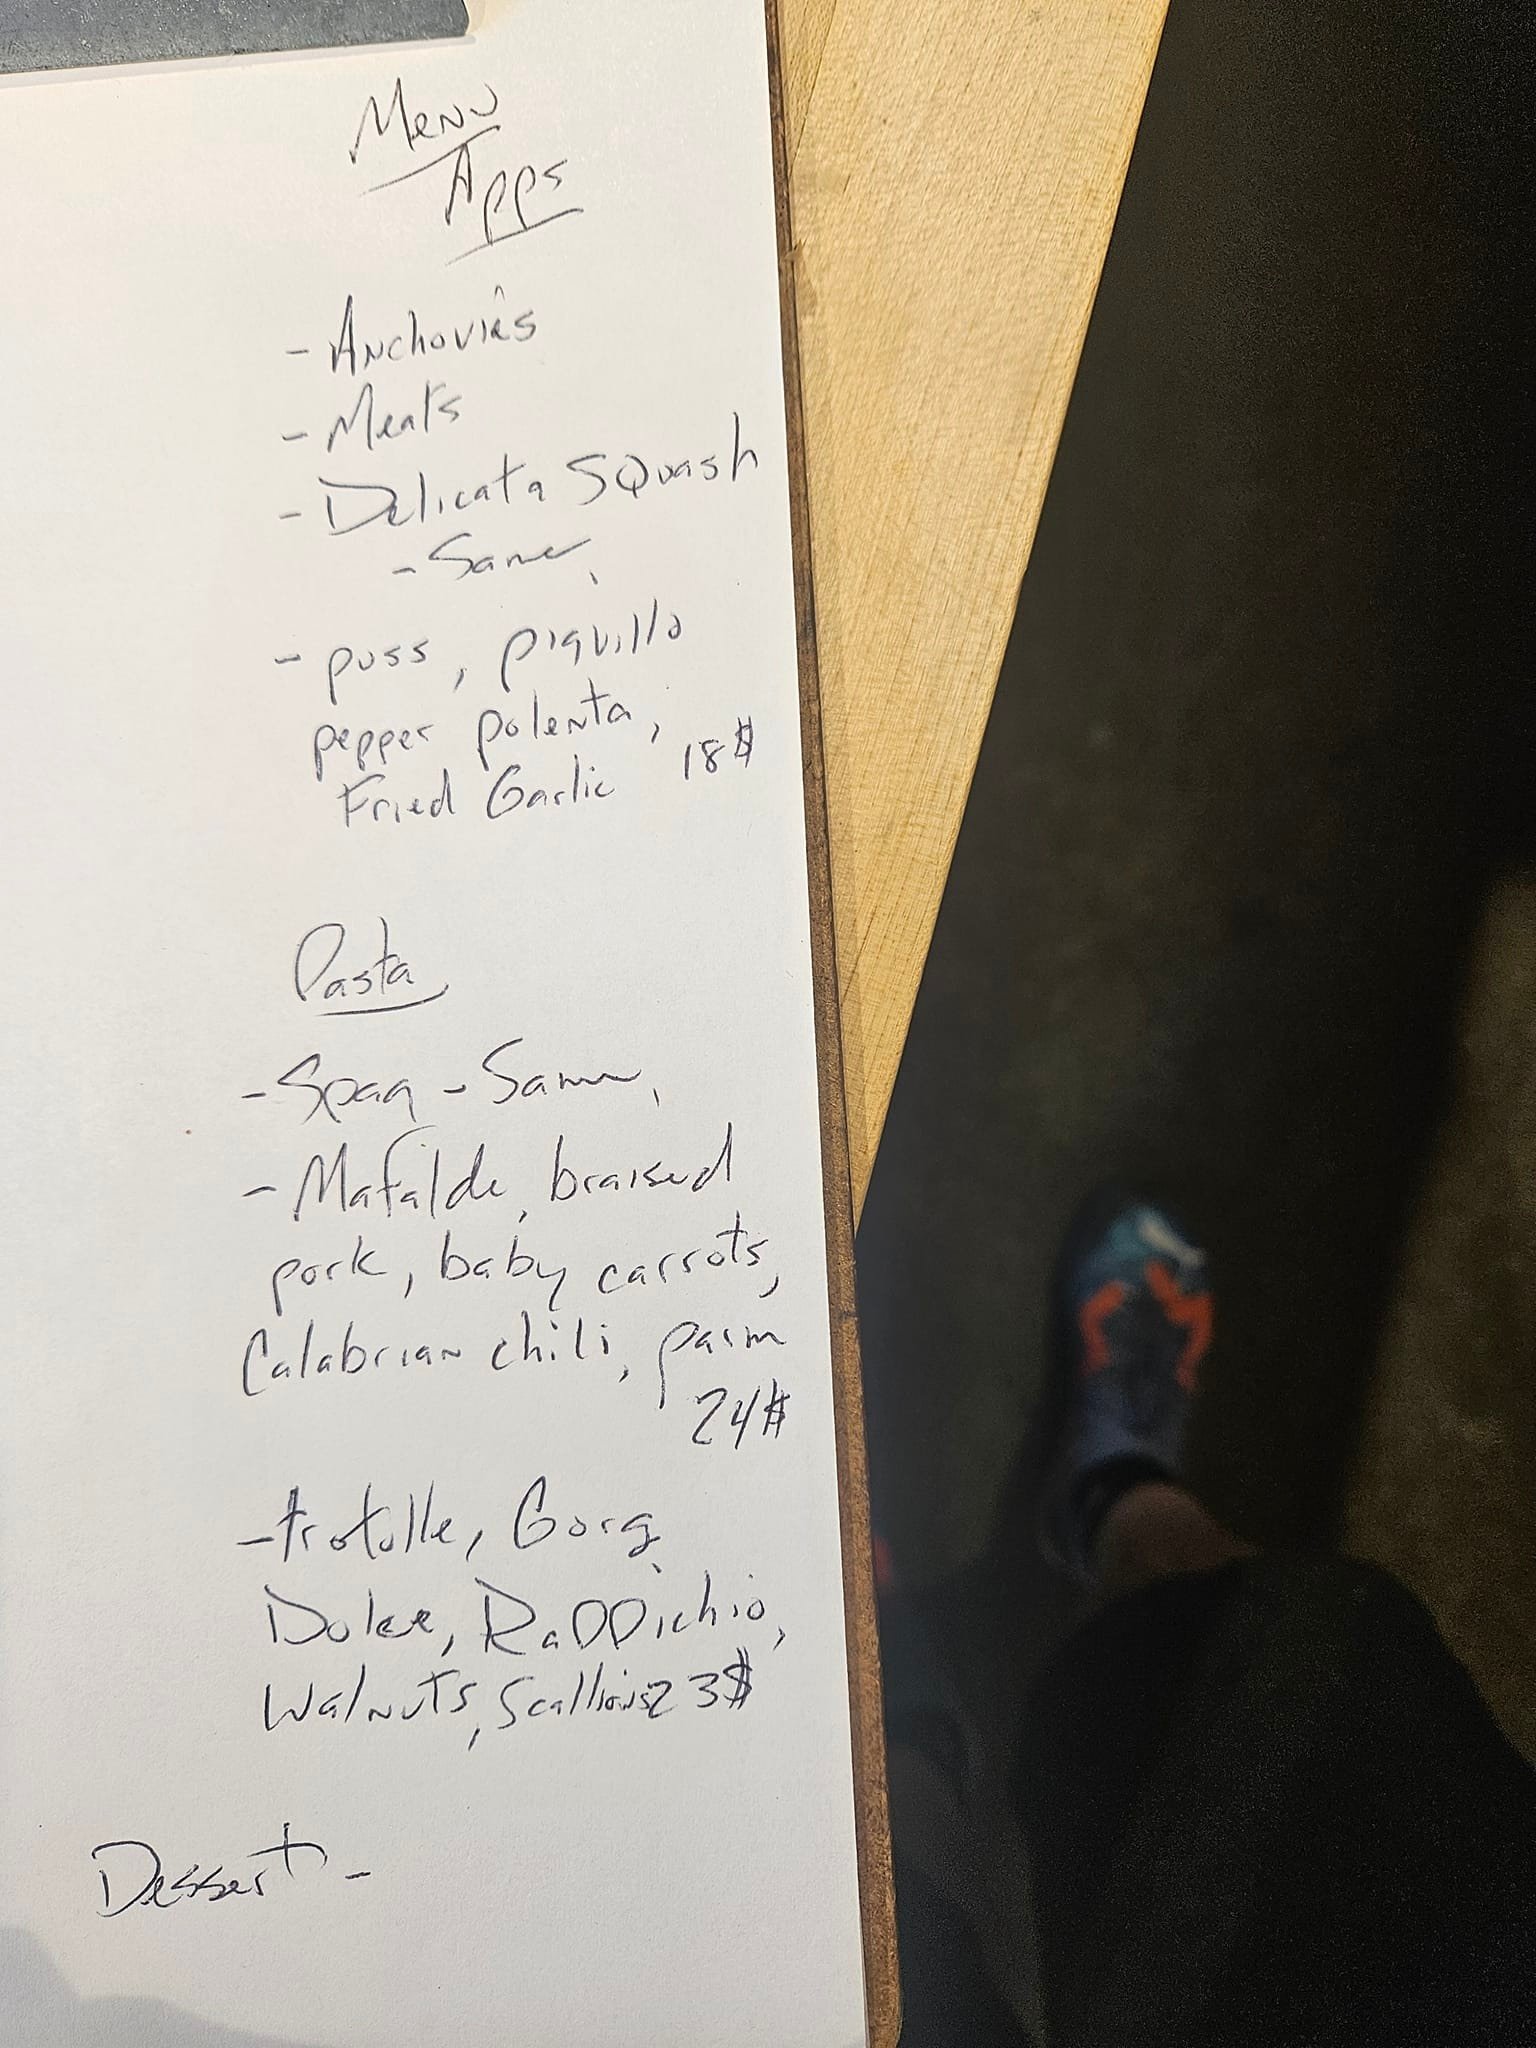 Menu
Apps
- Anchovies
- Meats
- Delicata Squash
- Same
- puss, piquillo
pepper polenta,
Fried Garlic 18$
Pasta
- Spag - Same
- Mafalde, braised
pork, baby carrots,
Calabrian chili, parm
24$
- trotolle, Gorg
Dolce, RaDDichio,
Walnuts, Scallions 23$
Dessert -